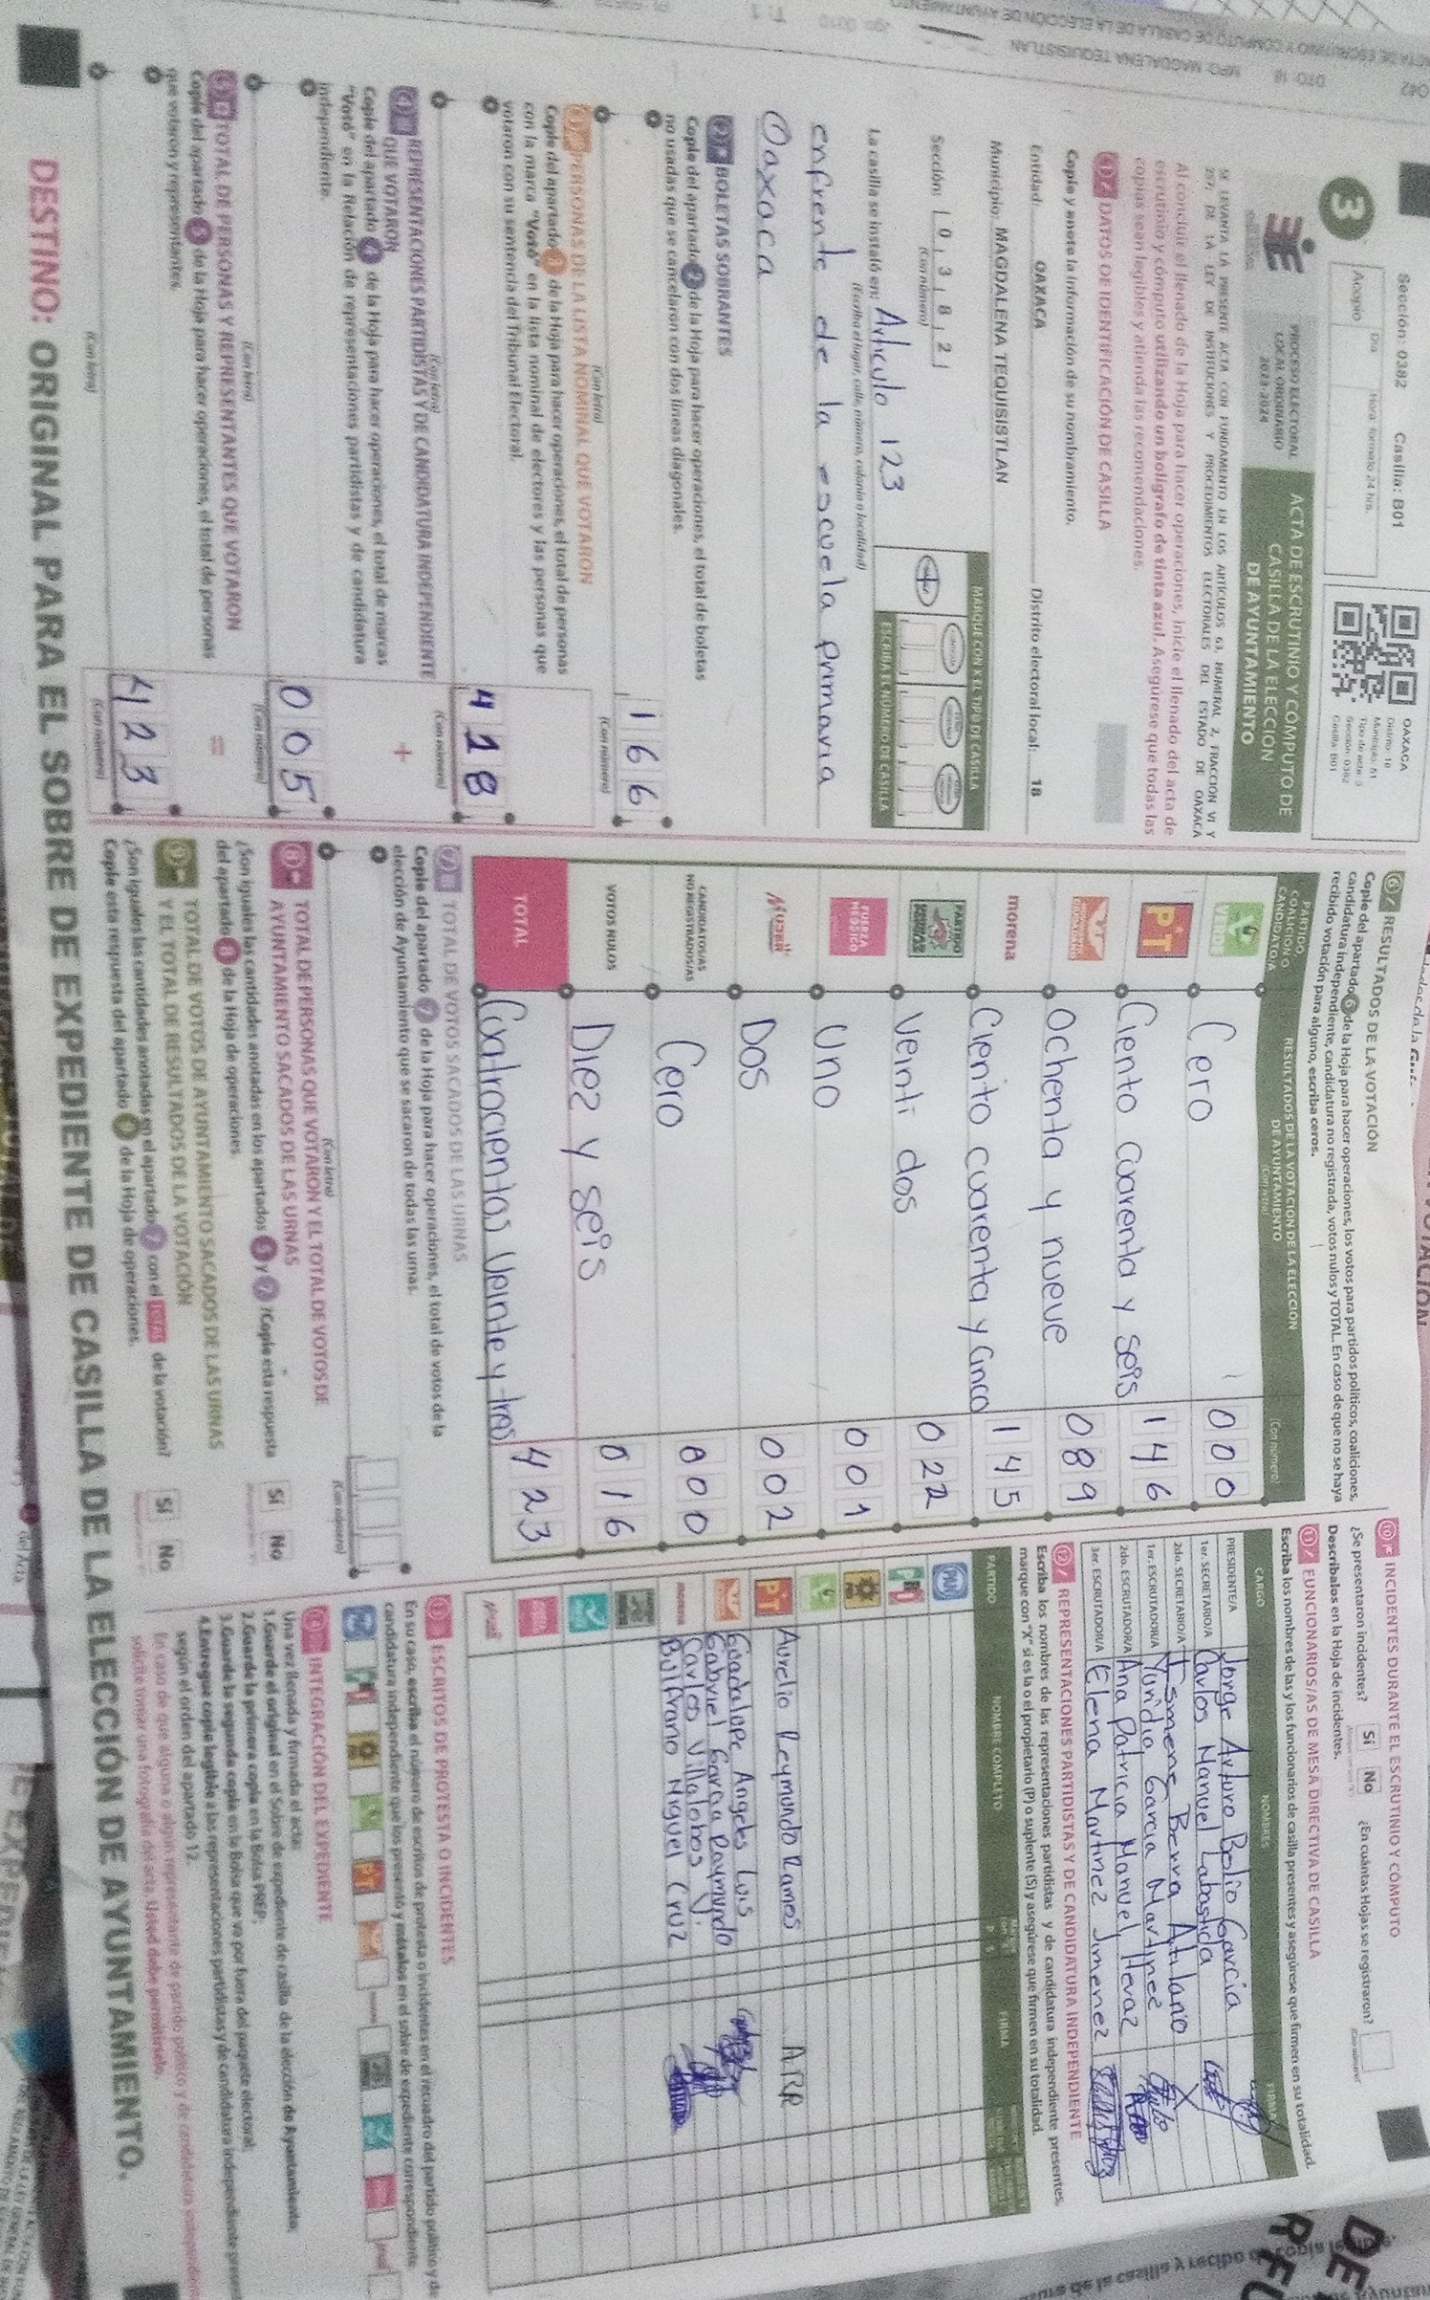 Sección: 0382 Casilla: B01
OAXACA
Distrito: 18
Sección: 0382
Casilla: B01
3
Acopio
Día
Hora: formato 24 hrs.
PROCESO ELECTORAL
LOCAL ORDINARIO
2023-2024
ACTA DE ESCRUTINIO Y CÓMPUTO DE
CASILLA DE LA ELECCIÓN
DE AYUNTAMIENTO
SE LEVANTA LA PRESENTE ACTA CON FUNDAMENTO EN LOS ARTÍCULOS 63, NUMERAL 2, FRACCIÓN VI Y
257; DE LA LEY DE INSTITUCIONES Y PROCEDIMIENTOS ELECTORALES DEL ESTADO DE OAXACA
Al concluir el llenado de la Hoja para hacer operaciones, inicie el llenado del acta de
escrutinio y cómputo utilizando un bolígrafo de tinta azul. Asegúrese que todas las
copias sean legibles y atienda las recomendaciones.
1 DATOS DE IDENTIFICACIÓN DE CASILLA
Copie y anote la información de su nombramiento.
Entidad: OAXACA Distrito electoral local: 18
Municipio: MAGDALENA TEQUISISTLAN
Sección: 0382
(Con número)
MARQUE CON X EL TIPO DE CASILLA
ESCRIBA EL NÚMERO DE CASILLA
La casilla se instaló en: Articulo 123
(Escriba el lugar, calle, número, colonia o localidad)
enfrente de la escuela primaria
Oaxaca
2 BOLETAS SOBRANTES
Copie del apartado 2 de la Hoja para hacer operaciones, el total de boletas
no usadas que se cancelaron con dos líneas diagonales.
166
(Con letra) (Con número)
3 PERSONAS DE LA LISTA NOMINAL QUE VOTARON
Copie del apartado 3 de la Hoja para hacer operaciones, el total de personas
con la marca "Votó" en la lista nominal de electores y las personas que
votaron con su sentencia del Tribunal Electoral.
418
(Con letra) (Con número)
4 REPRESENTACIONES PARTIDISTAS Y DE CANDIDATURA INDEPENDIENTE
QUE VOTARON
+
Copie del apartado 4 de la Hoja para hacer operaciones, el total de marcas
"Votó" en la Relación de representaciones partidistas y de candidatura
independiente.
005
(Con letra) (Con número)
5 TOTAL DE PERSONAS Y REPRESENTANTES QUE VOTARON
=
Copie del apartado 5 de la Hoja para hacer operaciones, el total de personas
que votaron y representantes.
423
(Con letra) (Con número)
6 RESULTADOS DE LA VOTACIÓN
Copie del apartado 6 de la Hoja para hacer operaciones, los votos para partidos políticos, coaliciones,
candidatura independiente, candidatura no registrada, votos nulos y TOTAL. En caso de que no se haya
recibido votación para alguno, escriba ceros.
PARTIDO,
COALICIÓN O
CANDIDATO/A
RESULTADOS DE LA VOTACIÓN DE LA ELECCIÓN
DE AYUNTAMIENTO
(Con letra) (Con número)
VERDE Cero 000
PT Ciento Cuarenta y seis 146
Ochenta y nueve 089
morena Ciento cuarenta y cinco 145
PARTIDO Veinti dos 022
FUERZA MÉXICO Uno 001
MUJER Dos 002
CANDIDATOS/AS
NO REGISTRADOS/AS Cero 000
VOTOS NULOS Diez y seis 016
TOTAL Cuatrocientos Veinte y tres 423
7 TOTAL DE VOTOS SACADOS DE LAS URNAS
Copie del apartado 7 de la Hoja para hacer operaciones, el total de votos de la
elección de Ayuntamiento que se sacaron de todas las urnas.
(Con letra) (Con número)
8 TOTAL DE PERSONAS QUE VOTARON Y EL TOTAL DE VOTOS DE
AYUNTAMIENTO SACADOS DE LAS URNAS
¿Son iguales las cantidades anotadas en los apartados 5 y 7? Copie esta respuesta
del apartado 8 de la Hoja de operaciones.
Sí No
9 TOTAL DE VOTOS DE AYUNTAMIENTO SACADOS DE LAS URNAS
Y EL TOTAL DE RESULTADOS DE LA VOTACIÓN
¿Son iguales las cantidades anotadas en el apartado 7 con el TOTAL de la votación?
Copie esta respuesta del apartado 9 de la Hoja de operaciones.
Sí No
10 INCIDENTES DURANTE EL ESCRUTINIO Y CÓMPUTO
¿Se presentaron incidentes? Sí No ¿En cuántas Hojas se registraron?
Descríbalos en la Hoja de incidentes.
11 FUNCIONARIOS/AS DE MESA DIRECTIVA DE CASILLA
Escriba los nombres de las y los funcionarios de casilla presentes y asegúrese que firmen en su totalidad.
CARGO NOMBRES FIRMA
PRESIDENTE/A Jorge Arturo Bolio Garcia
1er. SECRETARIO/A Carlos Manuel Labastida
2do. SECRETARIO/A Ismene Berra Atilano
1er. ESCRUTADOR/A Yurida Garcia Martinez
2do. ESCRUTADOR/A Ana Patricia Manuel
3er. ESCRUTADOR/A Elena Martinez Jimenez
12 REPRESENTACIONES PARTIDISTAS Y DE CANDIDATURA INDEPENDIENTE
Escriba los nombres de las representaciones partidistas y de candidatura independiente presentes,
marque con "X" si es la o el propietario (P) o suplente (S) y asegúrese que firmen en su totalidad.
PARTIDO NOMBRE COMPLETO FIRMA
PAN
PRI
PRD
PT Aurelio Reymundo Ramos ARR
Guadalupe Angeles Luis
Gabriel Garcia Raymundo
Carlos Villalobos V.
Bulfrano Miguel Cruz
13 ESCRITOS DE PROTESTA O INCIDENTES
En su caso, escriba el número de escritos de protesta o incidentes en el recuadro del partido político y de
candidatura independiente que los presentó y métalos en el sobre de expediente correspondiente.
INTEGRACIÓN DEL EXPEDIENTE
Una vez llenada y firmada el acta:
1.Guarde el original en el Sobre de expediente de casilla de la elección de Ayuntamiento;
2.Guarda la primera copia en la Bolsa PREP;
3.Guarda la segunda copia en la Bolsa que va por fuera del paquete electoral;
4.Entregue copia legible a las representaciones partidistas y de candidatura independiente
según el orden del apartado 12.
En caso de que alguna o algún representante de partido político y de candidatura independiente
solicite tomar una fotografía del acta, Usted debe permitírselo.
DESTINO: ORIGINAL PARA EL SOBRE DE EXPEDIENTE DE CASILLA DE LA ELECCIÓN DE AYUNTAMIENTO.